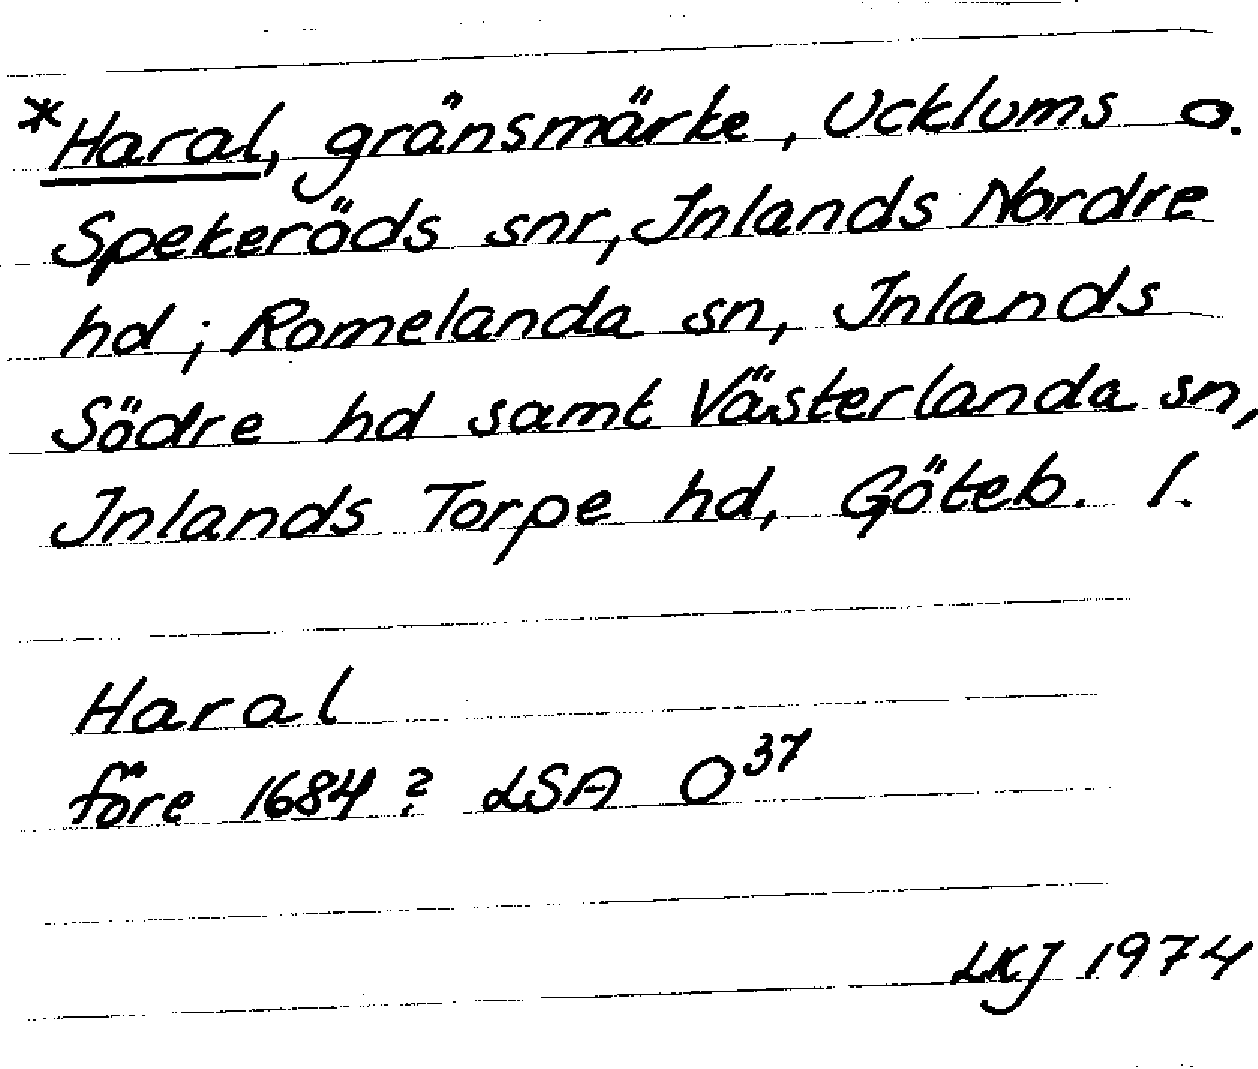 *Haral, gränsmärke, Ucklums o.
Spekeröds snr, Inlands Nordre
hd; Romelanda sn, Inlands
Södre hd samt Västerlanda sn,
Inlands Torpe hd, Göteb. l.
Haral
före 1684? LSA O37
LKJ 1974